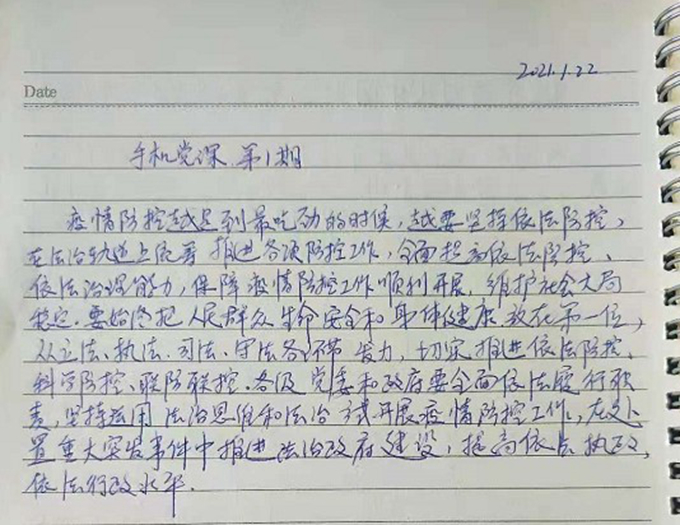 2021.1.22
Date
手机党课 第1期
疫情防控越是到最吃劲的时候,越要坚持依法防控,
在法治轨道上统筹推进各项防控工作,全面提高依法防控、
依法治理能力,保障疫情防控工作顺利开展,维护社会大局
稳定。要始终把人民群众生命安全和身体健康放在第一位,
从立法、执法、司法、守法各环节发力,切实推进依法防控、
科学防控、联防联控。各级党委和政府要全面依法履行职
责,坚持运用法治思维和法治 式开展疫情防控工作,在处
置重大突发事件中推进法治政府建设,提高依法执政、
依法行政水平.